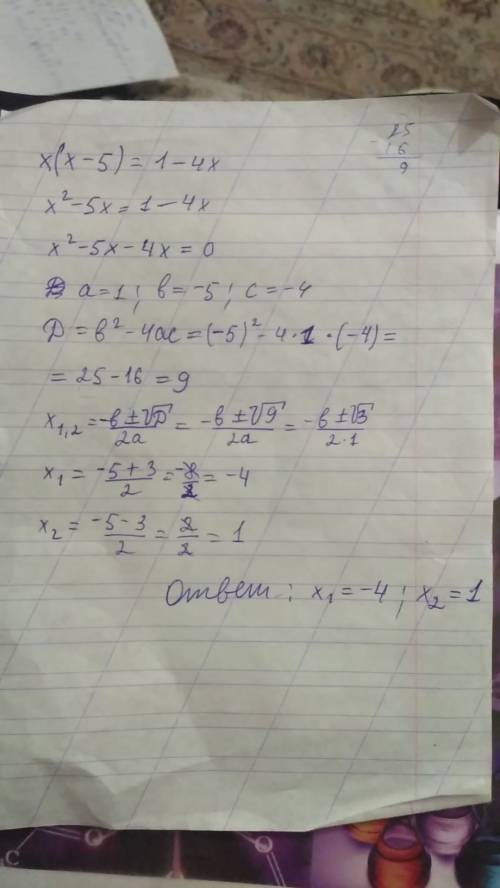 25
- 16
9
x(x-5) = 1-4x
x²-5x = 1-4x
x²-5x-4x = 0
a=1; b=-5; c=-4
D = b²-4ac = (-5)²-4·1·(-4) =
= 25-16 = 9
x₁,₂ = -b±√D/2a = -b±√9/2a = -b±√3/2·1
x₁ = -5+3/2 = -8/2 = -4
x₂ = -5-3/2 = 2/2 = 1
Ответ: x₁=-4; x₂=1
C